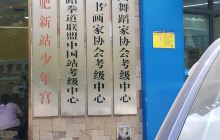 肥新站少年宫
跆拳道联盟中国站考级中心
书画家协会考级中心
舞蹈家协会考级中心